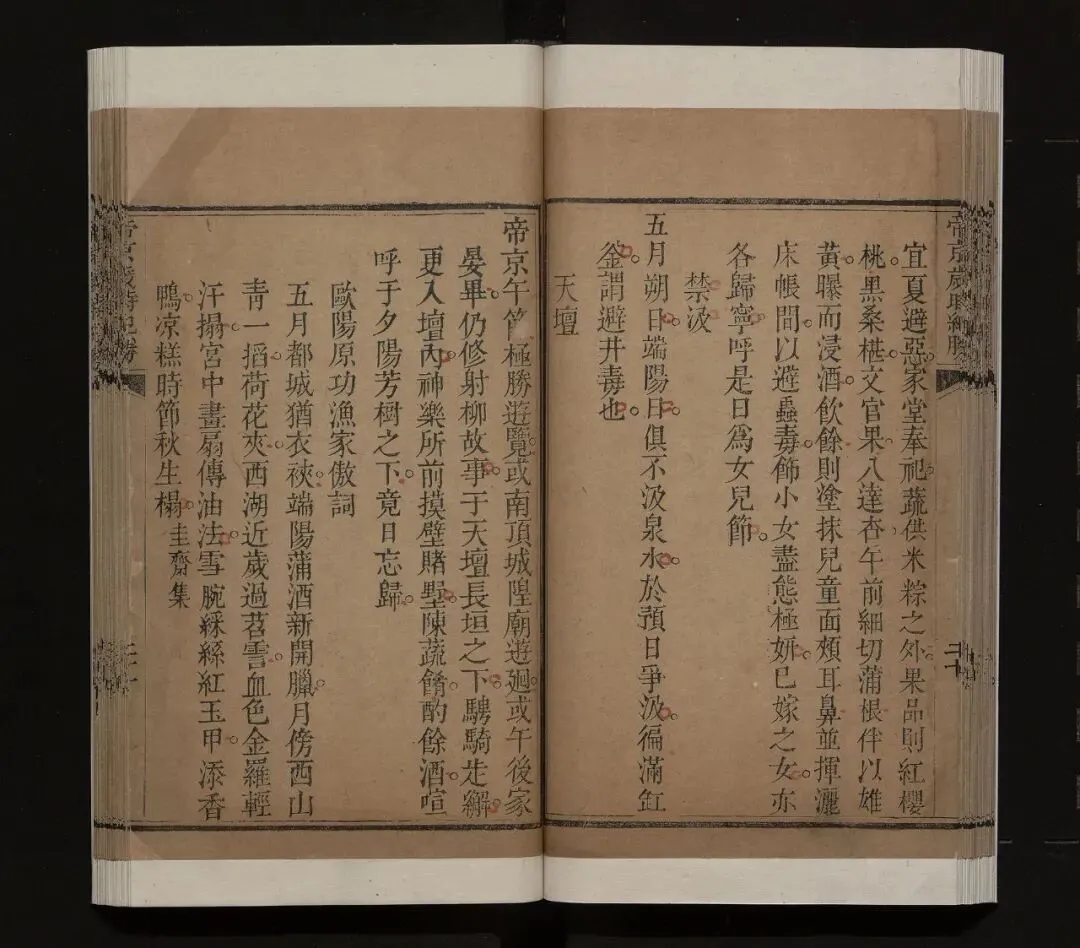 宜夏避惡家堂奉祀蔬供米粽之外果品則紅櫻
桃黑桑椹文官果八達杏午前細切蒲根伴以雄
黃曝而浸酒飲餘則塗抹兒童面頰耳鼻並揮灑
床帳間以避蟲毒飾小女盡態極妍已嫁之女亦
各歸寧呼是日爲女兒節
禁汲
五月朔日端陽日俱不汲泉水於預日爭汲徧滿缸
釜謂避井毒也
天壇
帝京午節極勝遊覽或南頂城隍廟遊廻或午後家
晏畢仍修射柳故事于天壇長垣之下騁騎走繲
更入壇內神樂所前摸壁賭墅陳蔬餚酌餘酒喧
呼于夕陽芳樹之下竟日忘歸
歐陽原功漁家傲詞
五月都城猶衣裌端陽蒲酒新開臘月傍西山
青一搯荷花夾西湖近歲過苕霅血色金羅輕
汗搨宮中畫扇傳油法雪腕綵絲紅玉甲添香
鴨凉糕時節秋生榻圭齋集
帝京歲時紀勝